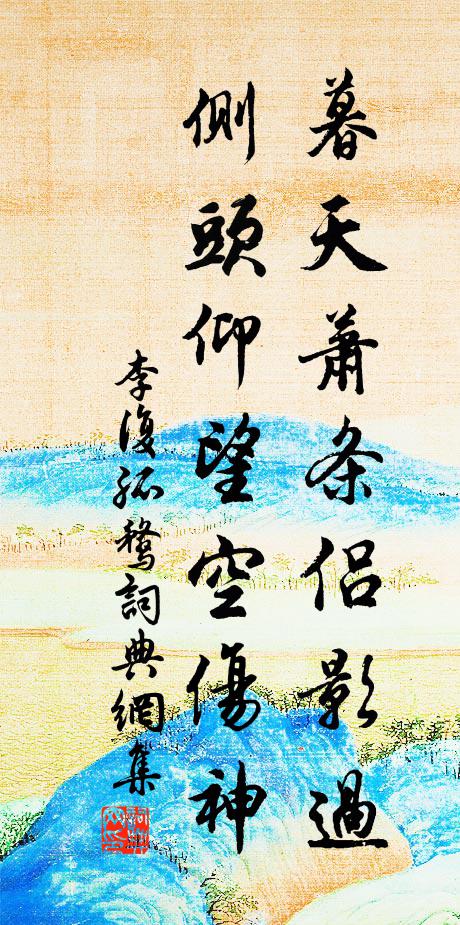 暮天蕭条侶影過
側頭仰望空傷神
李復孤鶩詞典網集